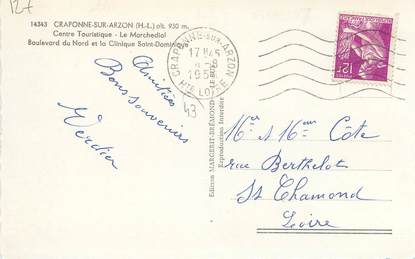 12F
14343 CRAPONNE-SUR-ARZON (H.-L.) alt. 930 m.
Centre Touristique - Le Marchedial
Boulevard du Nord et la Clinique Saint-Dominique
CRAPONNE-SUR-ARZON
17H45
HTE LOIRE
43
Amitiés
Bons souvenirs
Verdier
Edition MARGERIT-BREMOND - LE-PUY
Reproduction Interdite
12F
Mer & Mme Côte
rue Berthelot
St Chamond
Loire